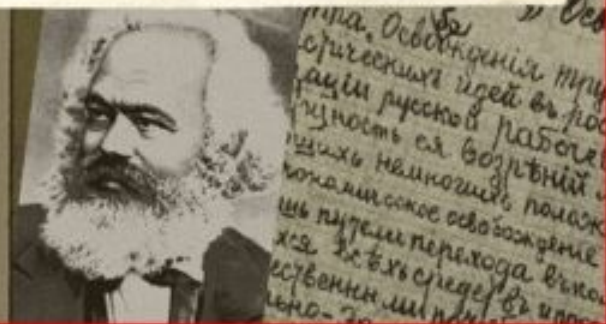 Освобожденія тру
стическихъ идей въ рос
аціи русской рабоче
ность ея воззрѣній
щихъ немногихъ полож
кономическое освобожденіе
шь путемъ перехода въ кол
хся всѣхъ средствъ и про
ественными
льно-